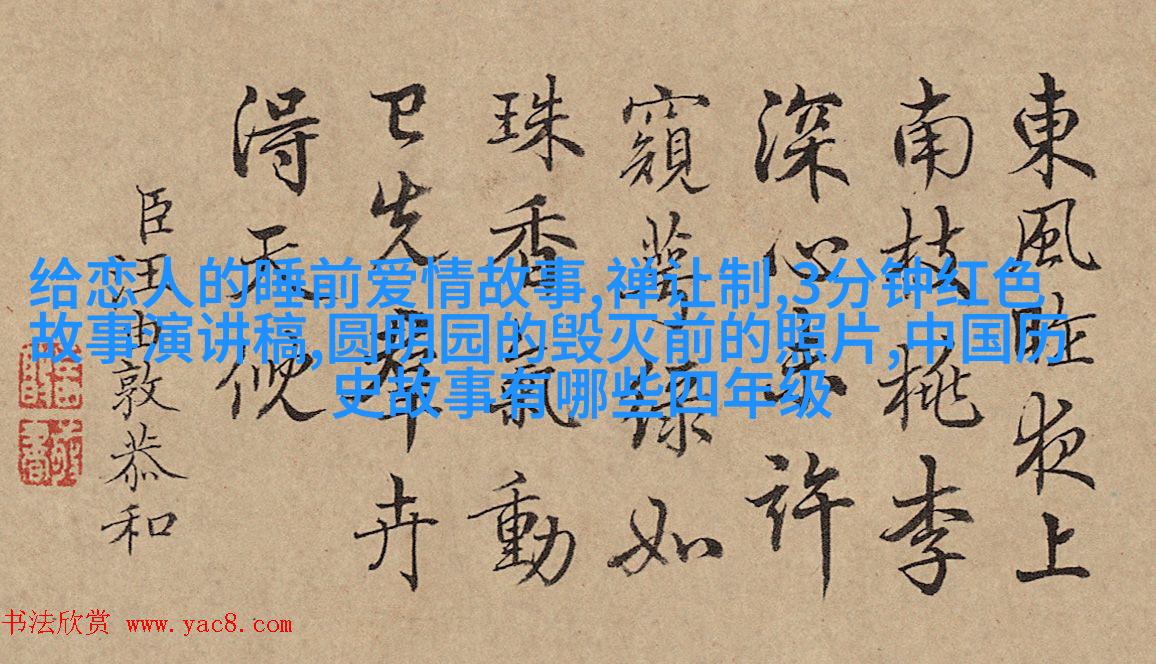 東風昨夜上
南枝桃李
深心未許
窺綠如
珠香氣動
已先羣卉
得天倪
臣汪由敦恭和
给恋人的睡前爱情故事,禅让制,3分钟红色
故事演讲稿,圆明园的毁灭前的照片,中国历
史故事有哪些四年级
书法欣赏 www.yac8.com